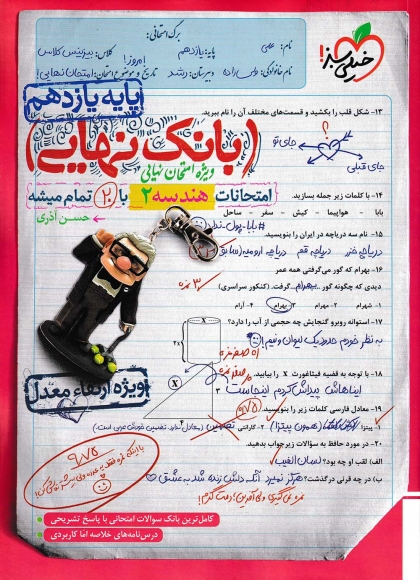 برگ امتحانی:
نام: علی
پایه: یازدهم
کلاس: بیزینس کلاس
نام خانوادگی:
دبیرستان: رشد
تاریخ و موضوع امتحان: امروز! امتحان نهایی!
خیلی سبز!
پایه یازدهم
۱۳- شکل قلب را بکشید و قسمت‌های مختلف آن را نام ببرید.
؟
جای تو
جای قبلی
(بانک نهایی)
ویژه امتحان نهایی
امتحانات هندسه ۲ با ۲۰ تمام میشه
حسن آذری
۱۴- با کلمات زیر جمله بسازید.
بابا - هواپیما - کیش - سفر - ساحل
#بابا-پول-ندارد
۱۵- نام سه دریاچه در ایران را بنویسید.
دریاچه خزر دریاچه قم دریاچه ارومیه (سابق)
۱۶- بهرام که گور می‌گرفتی همه عمر
دیدی که چگونه گور ..بهرام.. گرفت. (کنکور سراسری)
۱- شهرام ۲- مهرام ۳- بهرام ۴- آرام
۱۷- استوانه روبرو گنجایش چه حجمی از آب را دارد؟
به نظر خودم حدود یک لیوان و نیم!
x
2x
۱۸- با توجه به قضیه فیثاغورث X را بیابید.
ایناهاش پیداش کردم اینجاست
X
۳
۱۹- معادل فارسی کلمات زیر را بنویسید.
۱- پیتزا
(همون پیتزا)
۲- گارانتی
تضمین
۲۰- در مورد حافظ به سؤالات زیر جواب بدهید.
الف) لقب او چه بود؟ لسان الغیب
ب) در چه قرنی درگذشت؟ هرگز نمیرد آنکه دلش زنده شد به عشق
ویژه ارتقاء معدل
۹/۷۵
کامل‌ترین بانک سوالات امتحانی با پاسخ تشریحی
درس‌نامه‌های خلاصه اما کاربردی